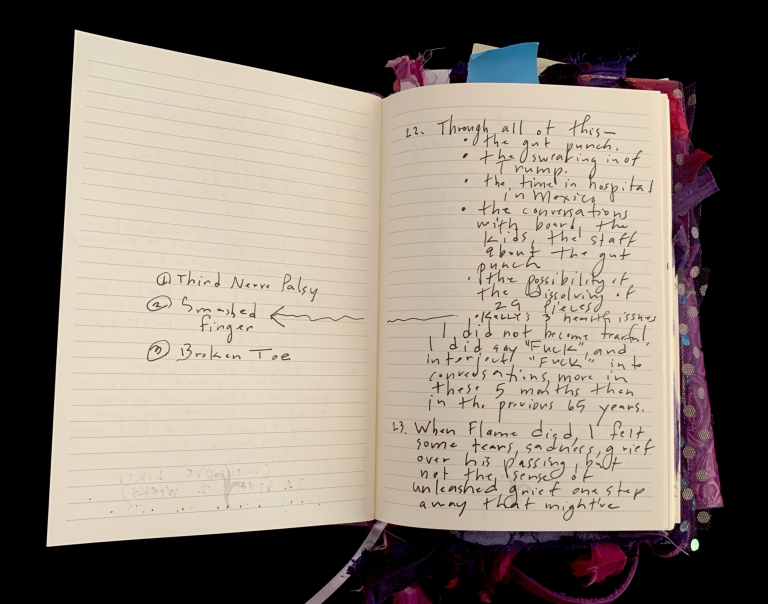 ① Third Nerve Palsy
② Smashed
finger
③ Broken Toe
22. Through all of this—
• the gut punch.
• the swearing in of
Trump.
• the time in hospital
in Mexico
• the conversations
with board, the
kids, the staff
about the gut
punch
• the possibility of
the dissolving of
29 pieces
• Kelly's 3 health issues
I did not become tearful,
I did say "Fuck", and
interject "Fuck!" into
conversations, more in
these 5 months than
in the previous 65 years.
23. When Flame died, I felt
some tears, sadness, grief
over his passing, but
not the sense of
unleashed grief one step
away that might've